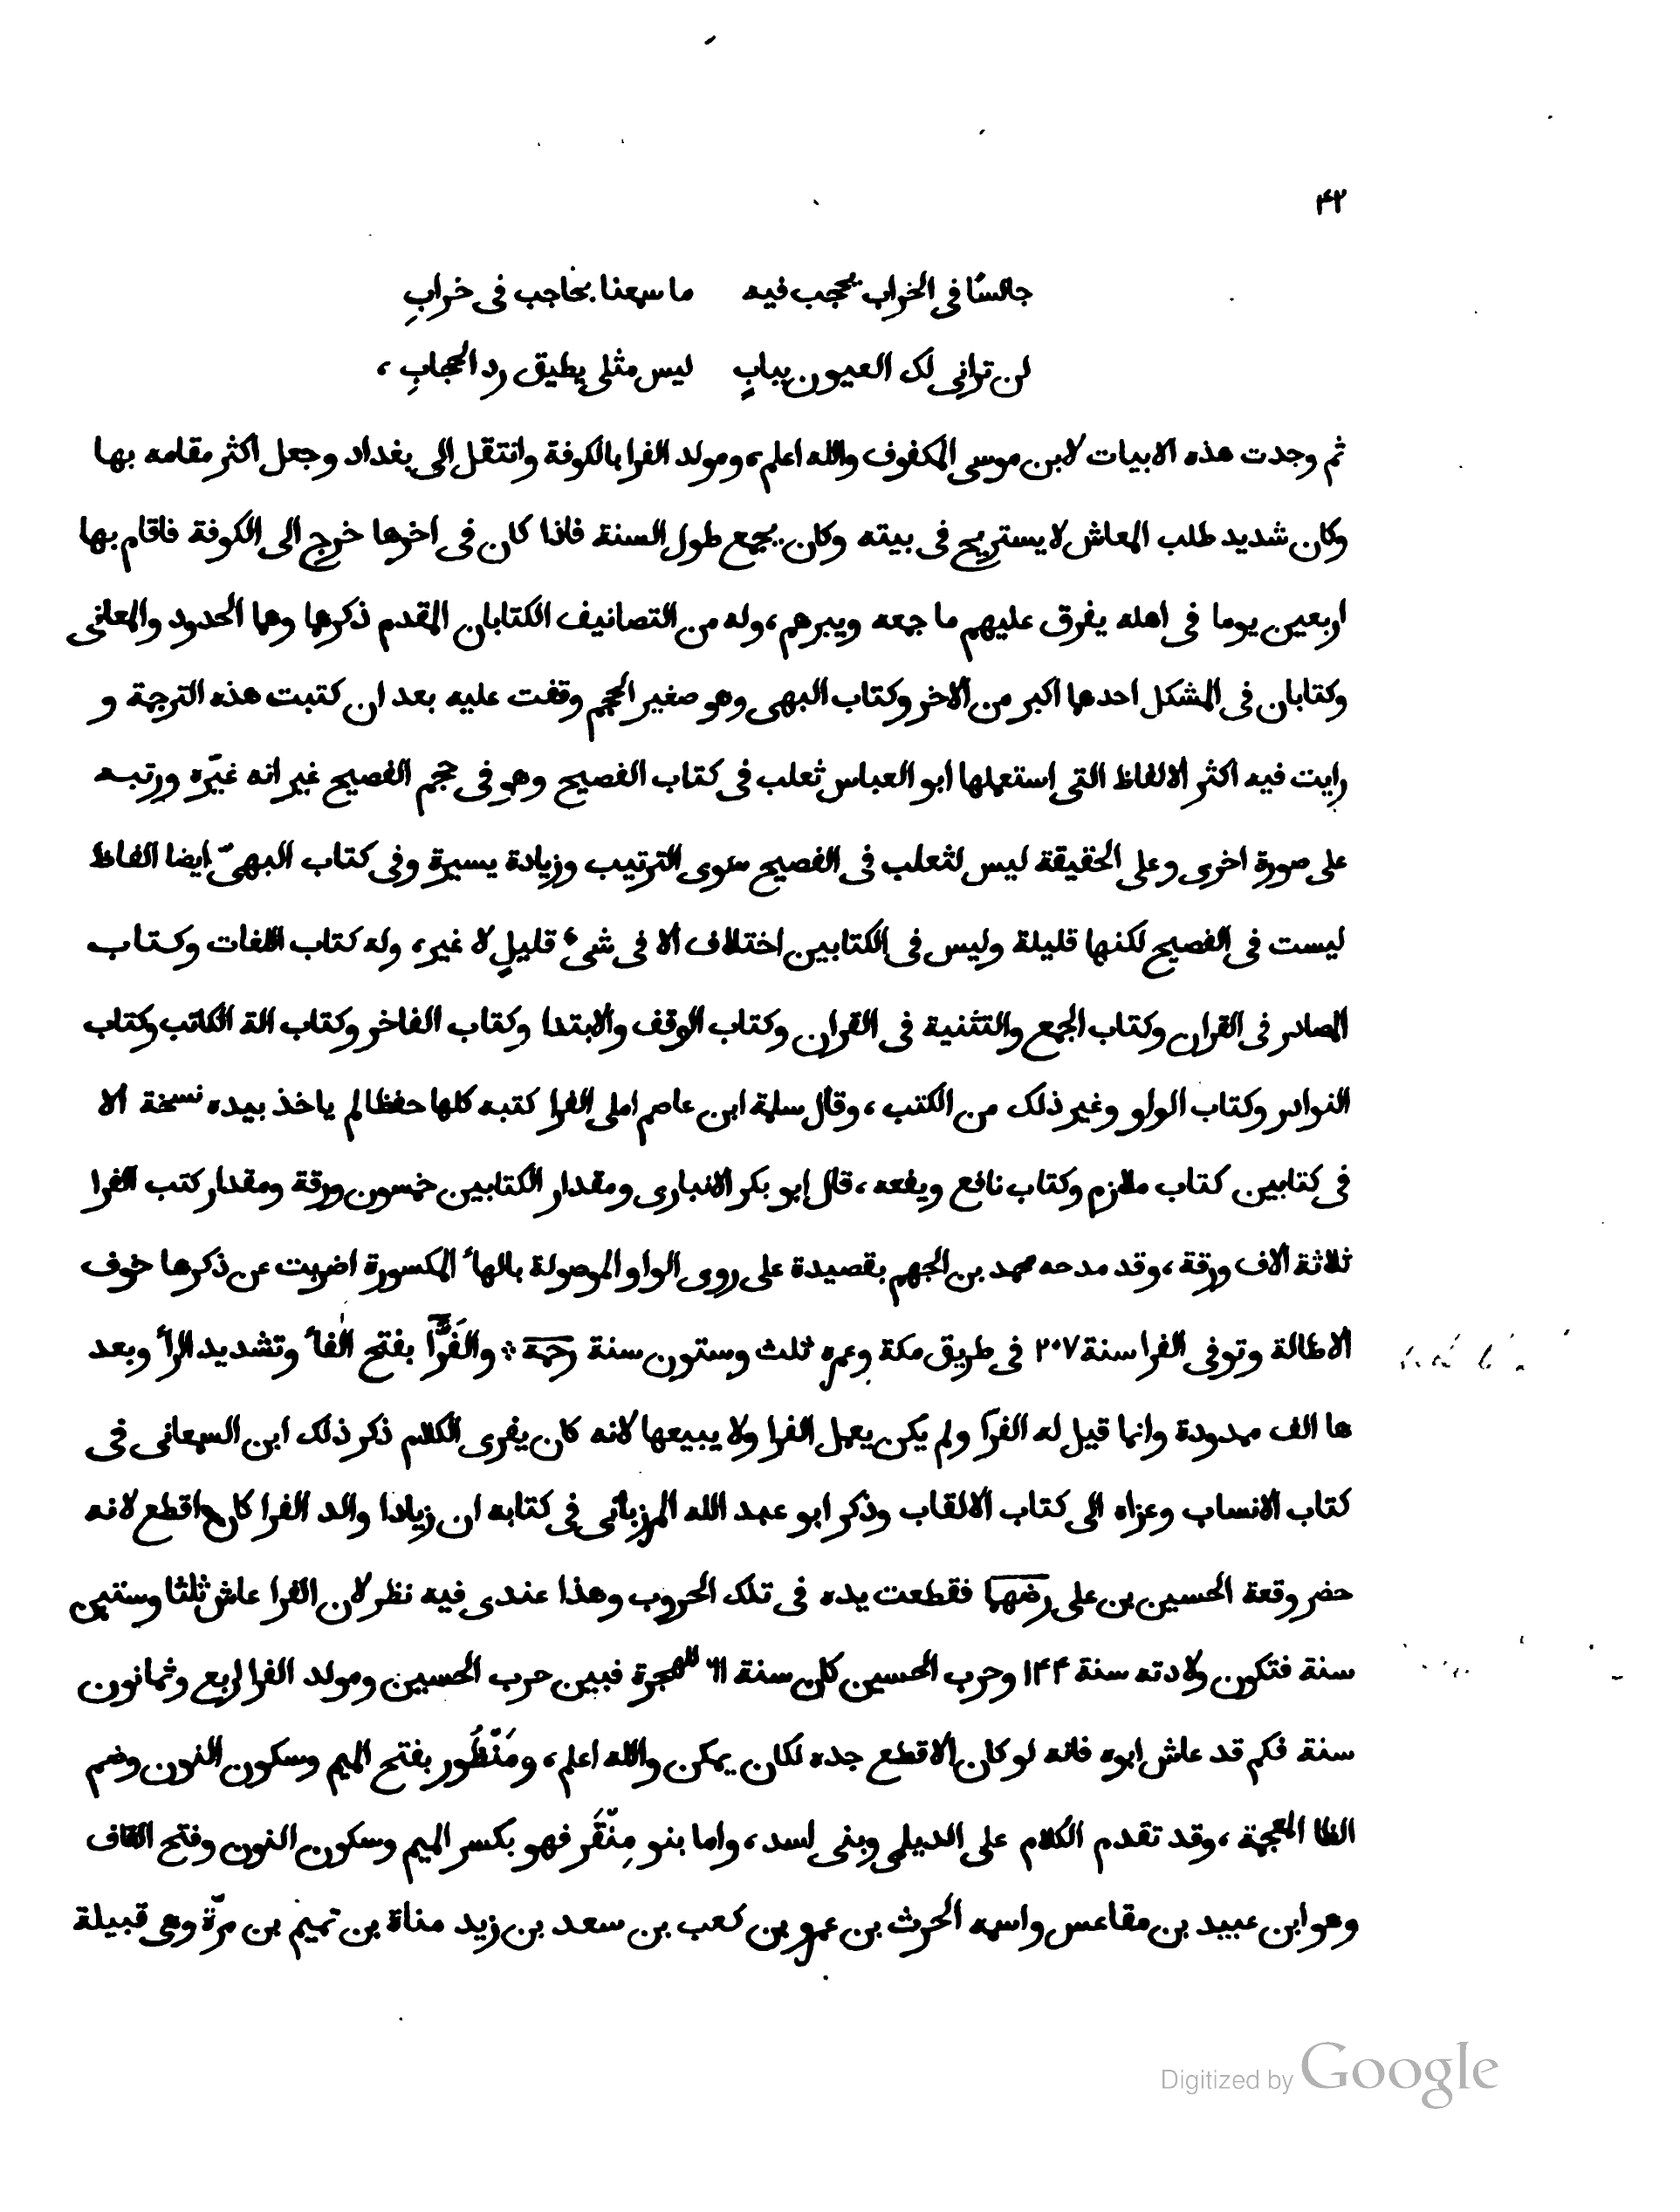 ۴۲
جالسًا فى الخراب يحجب فيه ما سمعنا بحاجب فى خرابِ
لن ترانى لك العيون ببابٍ ليس مثلى يطيق رد الحجابِ ،
ثم وجدت هذه الابيات لابن موسى المكفوف والله اعلم، ومولد الفرا بالكوفة وانتقل الى بغداد وجعل اكثر مقامه بها
وكان شديد طلب المعاش لا يستريح فى بيته وكان يجمع طول السنة فاذا كان فى اخرها خرج الى الكوفة فاقام بها
اربعين يوما فى اهله يفرق عليهم ما جمعه ويبرهم ، وله من التصانيف الكتابان المقدم ذكرهما وهما الحدود والمعانى
وكتابان فى المشكل احدهما اكبر من الاخر وكتاب البهى وهو صغير الحجم وقفت عليه بعد ان كتبت هذه الترجمة و
رايت فيه اكثر الالفاظ التى استعملها ابو العباس ثعلب فى كتاب الفصيح وهو فى حجم الفصيح غير انه غيّره ورتبه
على صورة اخرى وعلى الحقيقة ليس لثعلب فى الفصيح سوى الترتيب وزيادة يسيرة وفى كتاب البهىّ ايضا الفاظ
ليست فى الفصيح لكنها قليلة وليس فى الكتابين اختلاف الا فى شىء قليلٍ لا غير، وله كتاب اللغات وكتاب
المصادر فى القران وكتاب الجمع والتثنية فى القران وكتاب الوقف والابتدا وكتاب الفاخر وكتاب الة الكاتب وكتاب
النوادر وكتاب الواو وغير ذلك من الكتب ، وقال سلمة ابن عاصم املى الفرا كتبه كلها حفظا لم ياخذ بيده نسخة الا
فى كتابين كتاب ملازم وكتاب نافع ويفعه ، قال ابو بكر الانبارى ومقدار الكتابين خمسون ورقة ومقدار كتب الفرا
ثلاثة الاف ورقة ، وقد مدحه محمد بن الجهم بقصيدة على روى الواو الموصولة بالهاء المكسورة اضربت عن ذكرها خوف
الاطالة وتوفى الفرا سنة ٢٠٧ فى طريق مكة وعمره ثلث وستون سنة رحمة * والفَرَّا بفتح الفاء وتشديد الراء وبعد
ها الف ممدودة وانما قيل له الفرآ ولم يكن يعمل الفرا ولا يبيعها لانه كان يفرى الكلام ذكر ذلك ابن السمعانى فى
كتاب الانساب وعزاه الى كتاب الالقاب وذكر ابو عبد الله المرزبانى فى كتابه ان زيادا والد الفرا كان اقطع لانه
حضر وقعة الحسين بن على رضهما فقطعت يده فى تلك الحروب وهذا عندى فيه نظر لان الفرا عاش ثلثا وستين
سنة فتكون ولادته سنة ۱۴۴ وحرب الحسين كان سنة ٦١ للهجرة فبين حرب الحسين ومولد الفرا اربع وثمانون
سنة فكم قد عاش ابوه فانه لو كان الاقطع جده لكان يمكن والله اعلم، ومَنْظُور بفتح الميم وسكون النون وضم
الظا المعجمة ، وقد تقدم الكلام على الديلمى وبنى اسد، واما بنو مِنْقَر فهو بكسر الميم وسكون النون وفتح القاف
وهو ابن عبيد بن مقاعس واسمه الحرث بن عمرو بن كعب بن سعد بن زيد مناة بن تميم بن مرّة وهى قبيلة
Digitized by Google